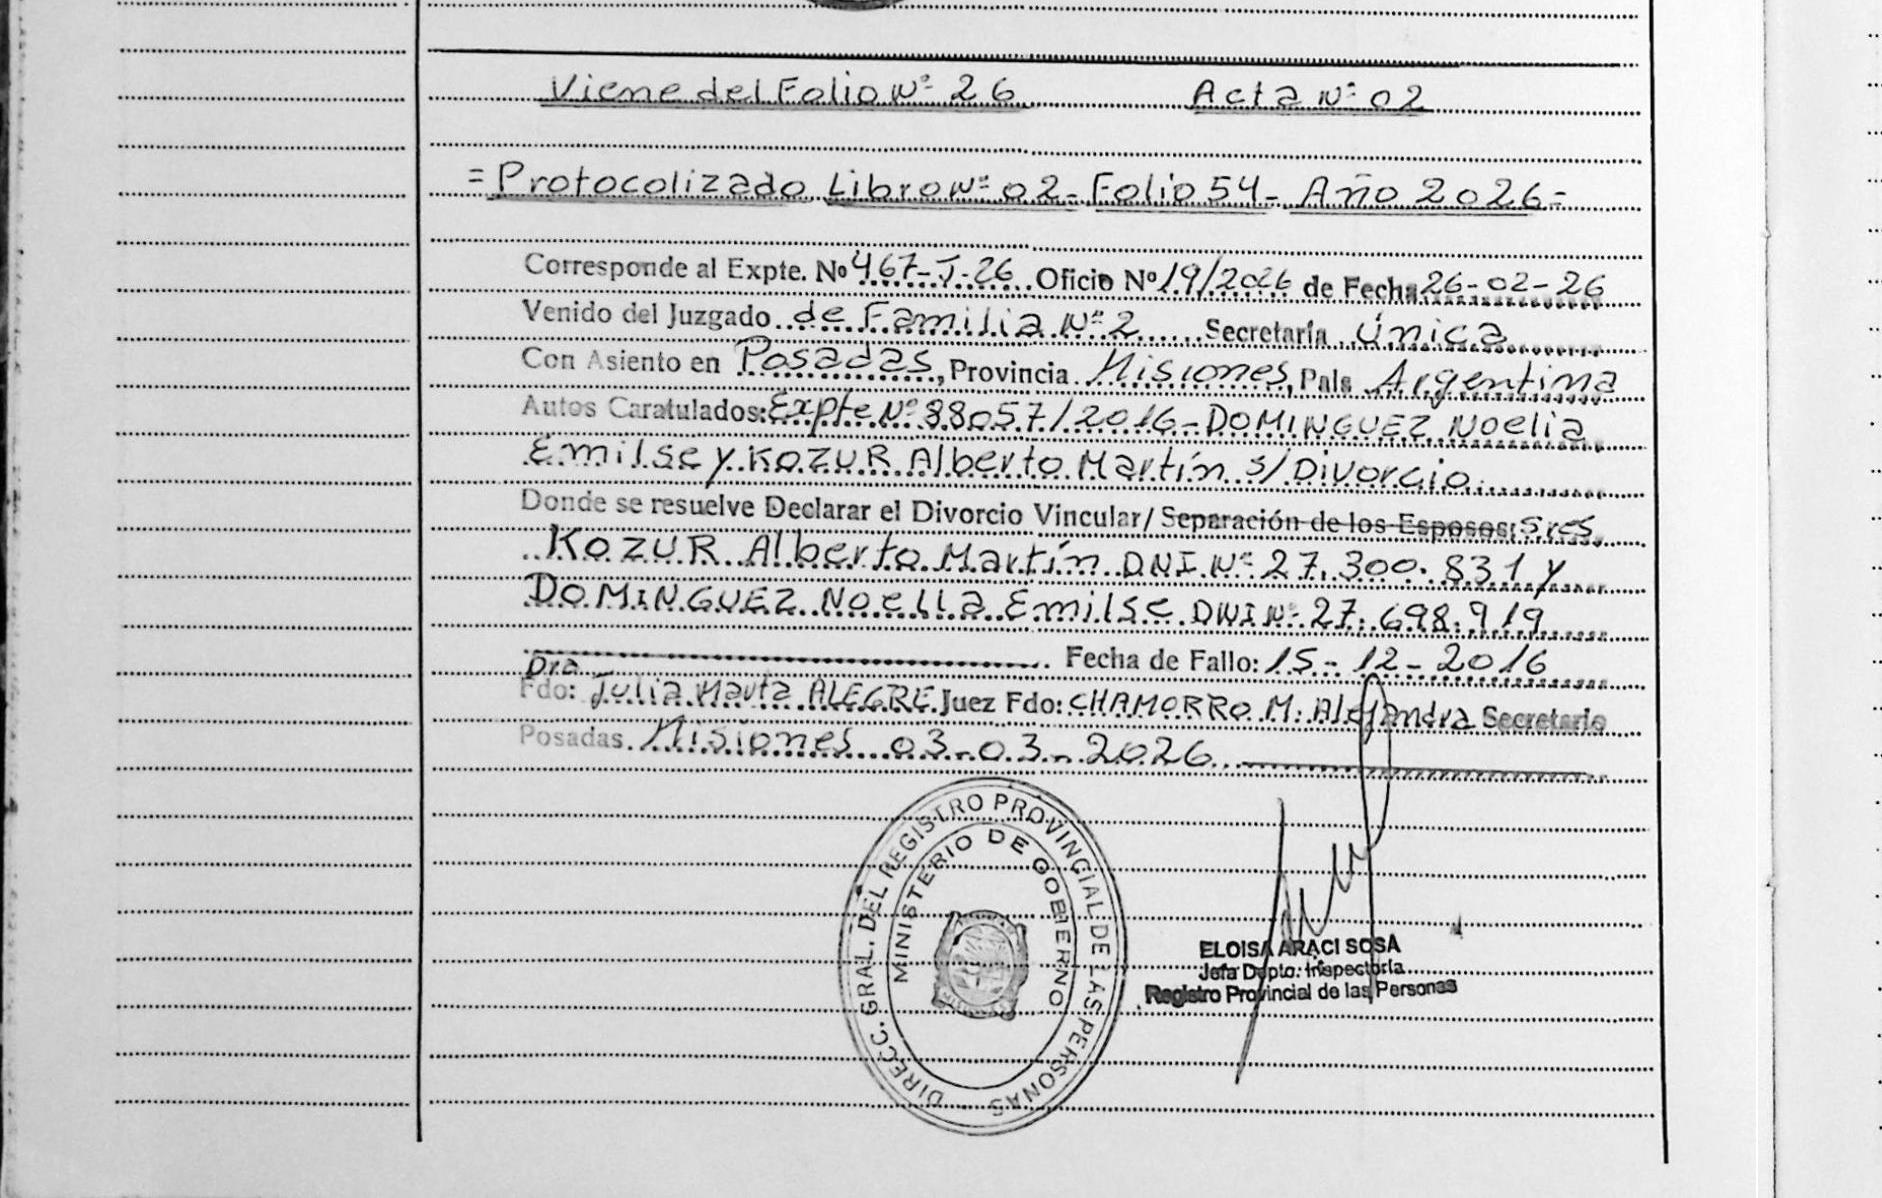 Viene del Folio Nº 26 Acta Nº 02
= Protocolizado Libro Nº 02 - Folio 54 - Año 2026 =
Corresponde al Expte. Nº 467-J-26 Oficio Nº 19/2026 de Fecha 26-02-26
Venido del Juzgado de Familia Nº 2 Secretaría Única
Con Asiento en Posadas, Provincia Misiones, País Argentina
Autos Caratulados: Expte Nº 88057/2016 - DOMINGUEZ Noelia
Emilse y KOZUR Alberto Martín s/ Divorcio
Donde se resuelve Declarar el Divorcio Vincular/ Separación de los Esposos: Sres.
KOZUR Alberto Martín DNI Nº 27.300.831 y
DOMINGUEZ Noelia Emilse DNI Nº 27.698.919
Fecha de Fallo: 15-12-2016
Dra
Fdo: Julia Marta ALEGRE Juez Fdo: CHAMORRO M. Alejandra Secretario
Posadas Misiones 03-03-2026
DIRECC. GRAL. DEL REGISTRO PROVINCIAL DE LAS PERSONAS
MINISTERIO DE GOBIERNO
ELOISA ARACI SOSA
Jefa Dpto. Inspectoría
Registro Provincial de las Personas